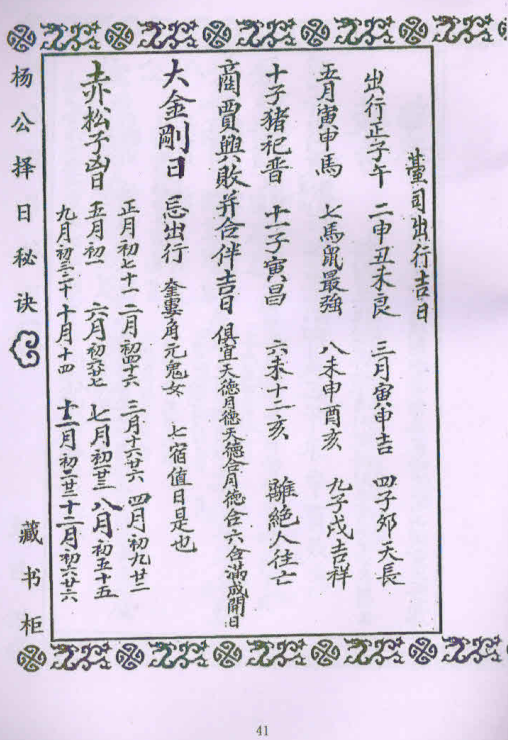 臺司出行吉日
出行正子午 二申丑未良 三月寅申吉 四子夘天長
五月寅申馬 七馬鼠最強 八未申酉亥 九子戌吉祥
十子猪祀晋 十一子寅昌 六未十二亥 離絕人往亡
商賈興敗并合伴吉日 俱宜天德月德天德合月德合六合滿成開日
大金剛日 忌出行 奎婁角亢鬼女 七宿值日是也
赤松子凶日
正月初七十一 二月初四十六 三月十六廿六 四月初九廿二
五月初一 六月初六廿七 七月初二廿三 八月初五十五
九月初三二十 十月十四 十一月初二廿三 十二月初六廿六
杨公择日秘诀
藏书柜
41